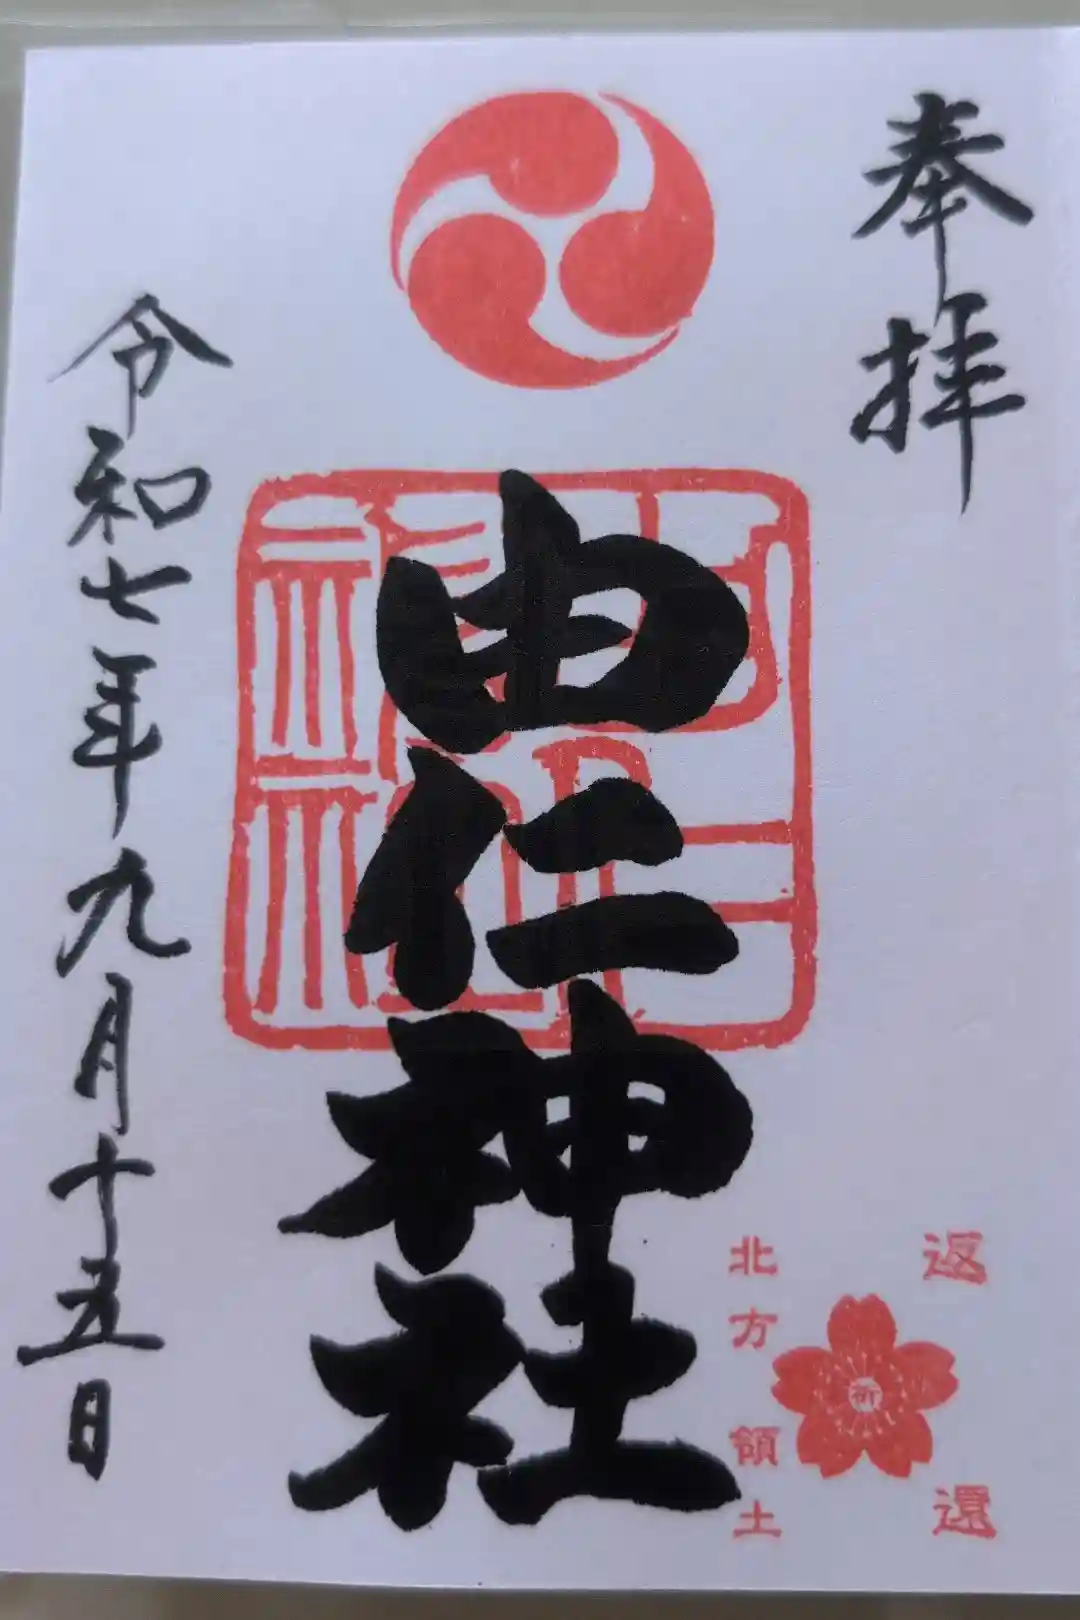 奉拝
由仁神社
令和七年九月十五日
返還
祈
北方領土